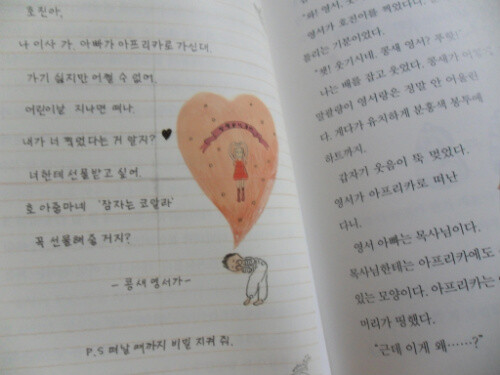 호진아,
나 이사 가. 아빠가 아프리카로 가신대.
가기 싫지만 어쩔 수 없어.
어린이날 지나면 떠나.
내가 너 찍었다는 거 알지?
너한테 선물받고 싶어.
호 아줌마네 '잠자는 코알라'
꼭 선물해 줄 거지?
- 콩새 영서가 -
P.S 떠날 때까지 비밀 지켜 줘.
영서가 호진이를 찍었다니.
틀리는 기분이었다.
나는 배를 잡고 웃었다. 콩새가
말괄량이 영서랑은 정말 안 어울린
다. 게다가 유치하게 분홍색 봉투에
하트까지.
갑자기 웃음이 뚝 멎었다.
영서가 아프리카로 떠난
다니.
영서 아빠는 목사님이다.
목사님한테는 아프리카에도
있는 모양이다. 아프리카는
머리가 띵했다.
"근데 이게 왜……?"